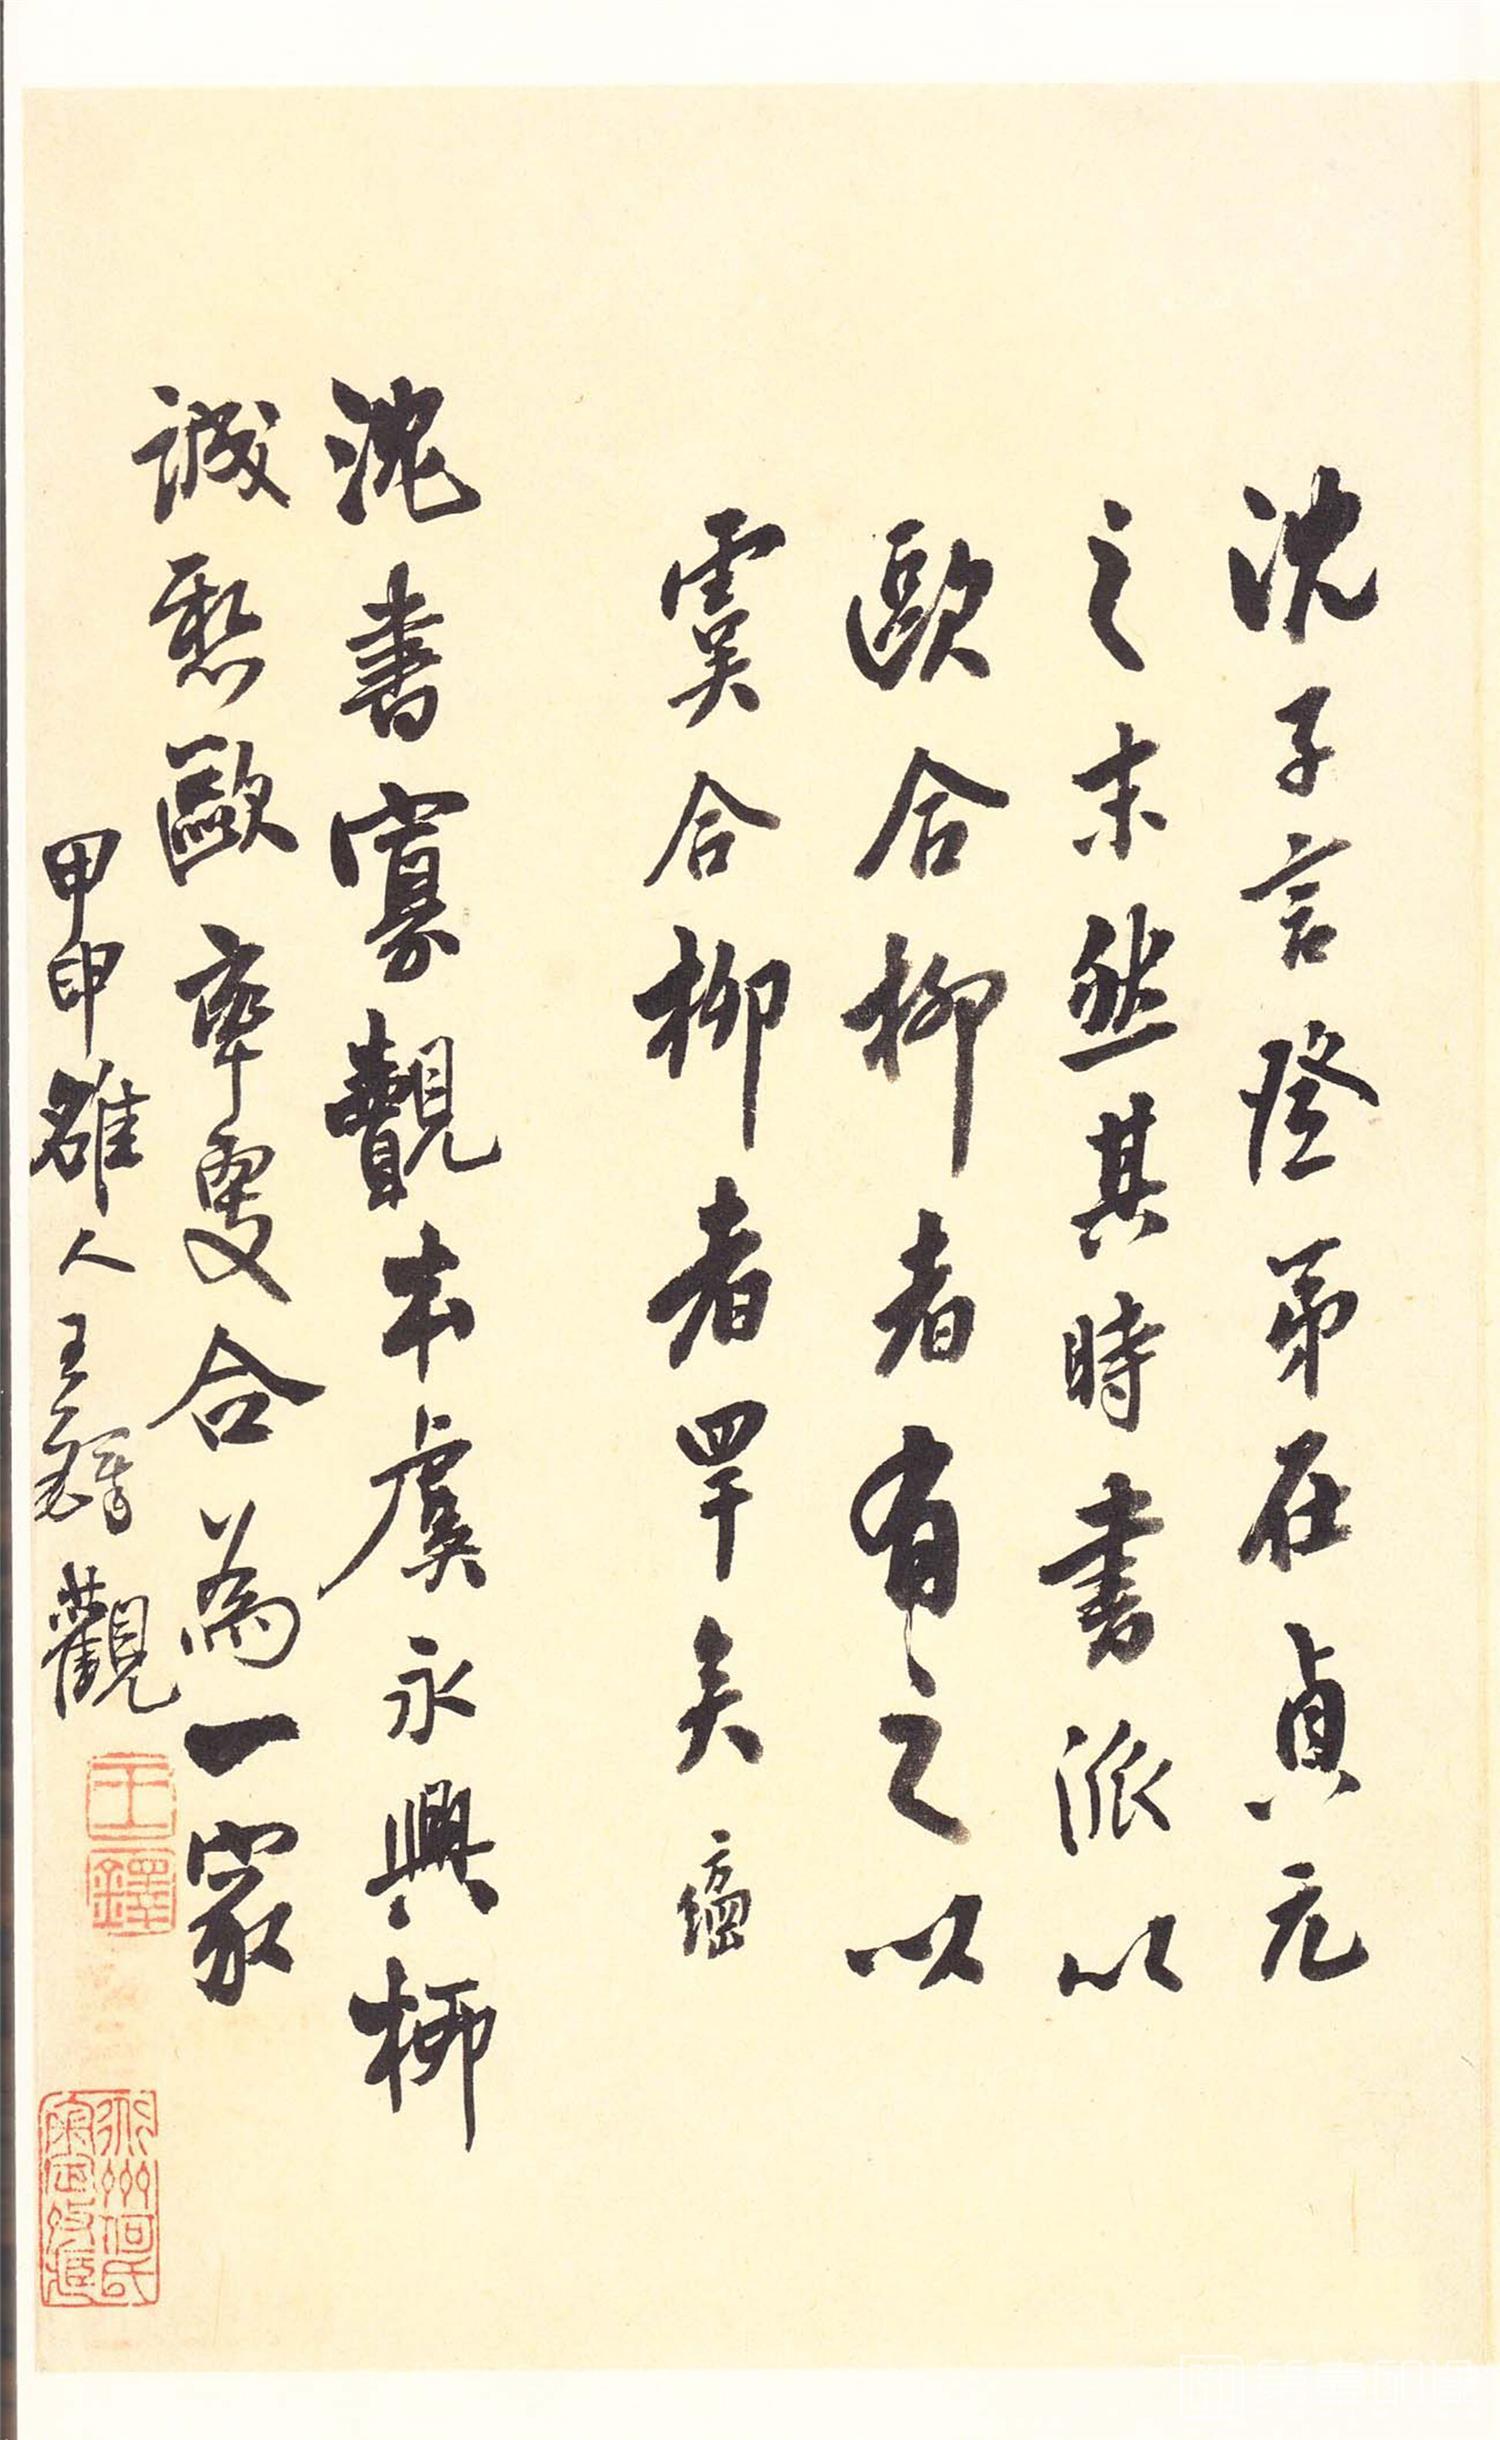 沈子言登第在貞元
之末然其時書派以
歐合柳者有之以
虞合柳者罕矣 方綱
沈書寡觀本虞永興柳
誠懸歐率更合為一家
甲申雒人王鐸觀
王鐸
道州何氏